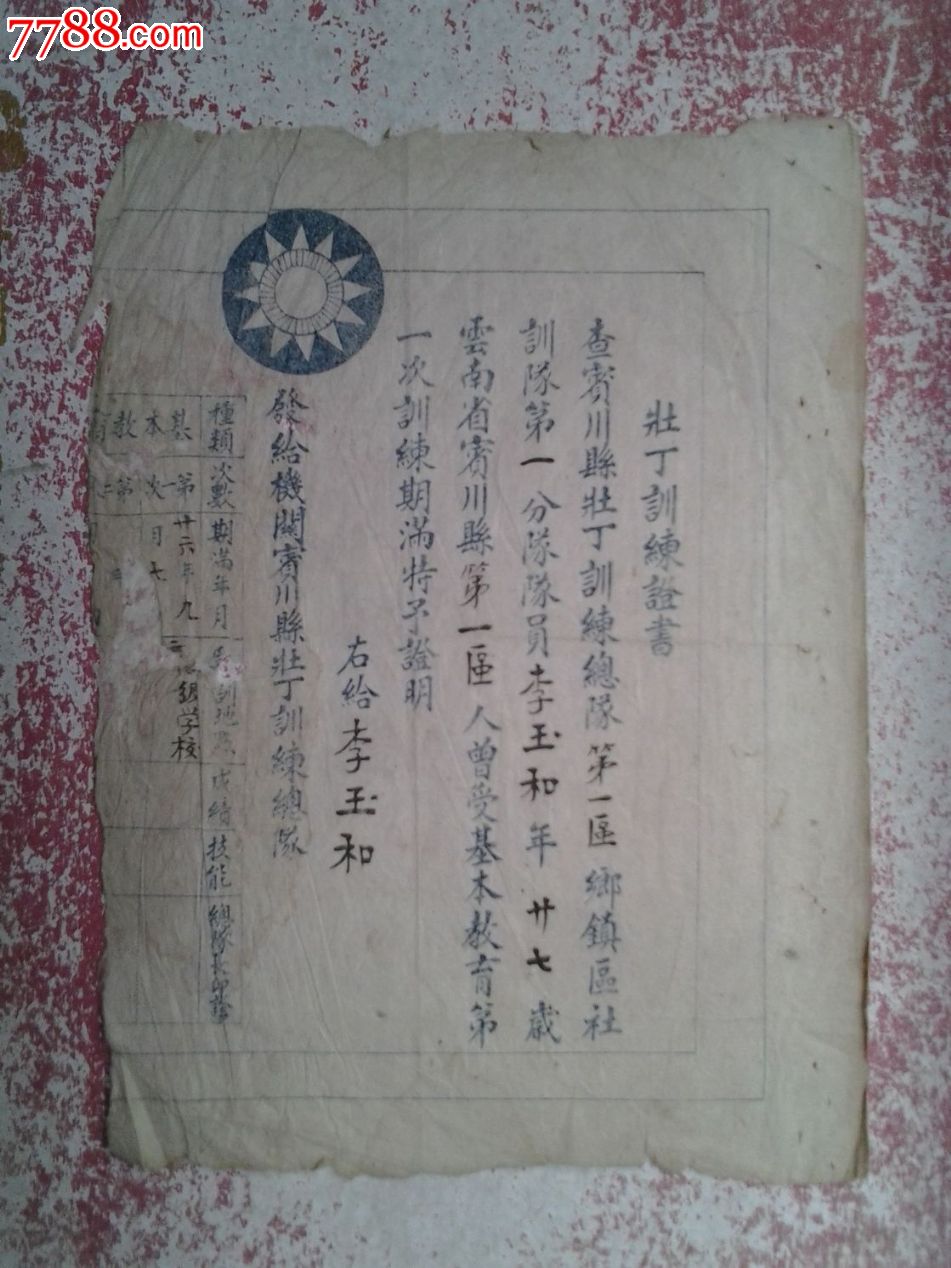 7788.com
壯丁訓練證書
查賓川縣壯丁訓練總隊第一區鄉鎮區社
訓隊第一分隊隊員李玉和年廿七歲
雲南省賓川縣第一區人曾受基本教育第
一次訓練期滿特予證明
右給李玉和
發給機關賓川縣壯丁訓練總隊
種類 次數 期滿年月 訓地 成绩 技能 總隊長印證
基 第一 廿六年九 银学校
本 次 月七
教 第二